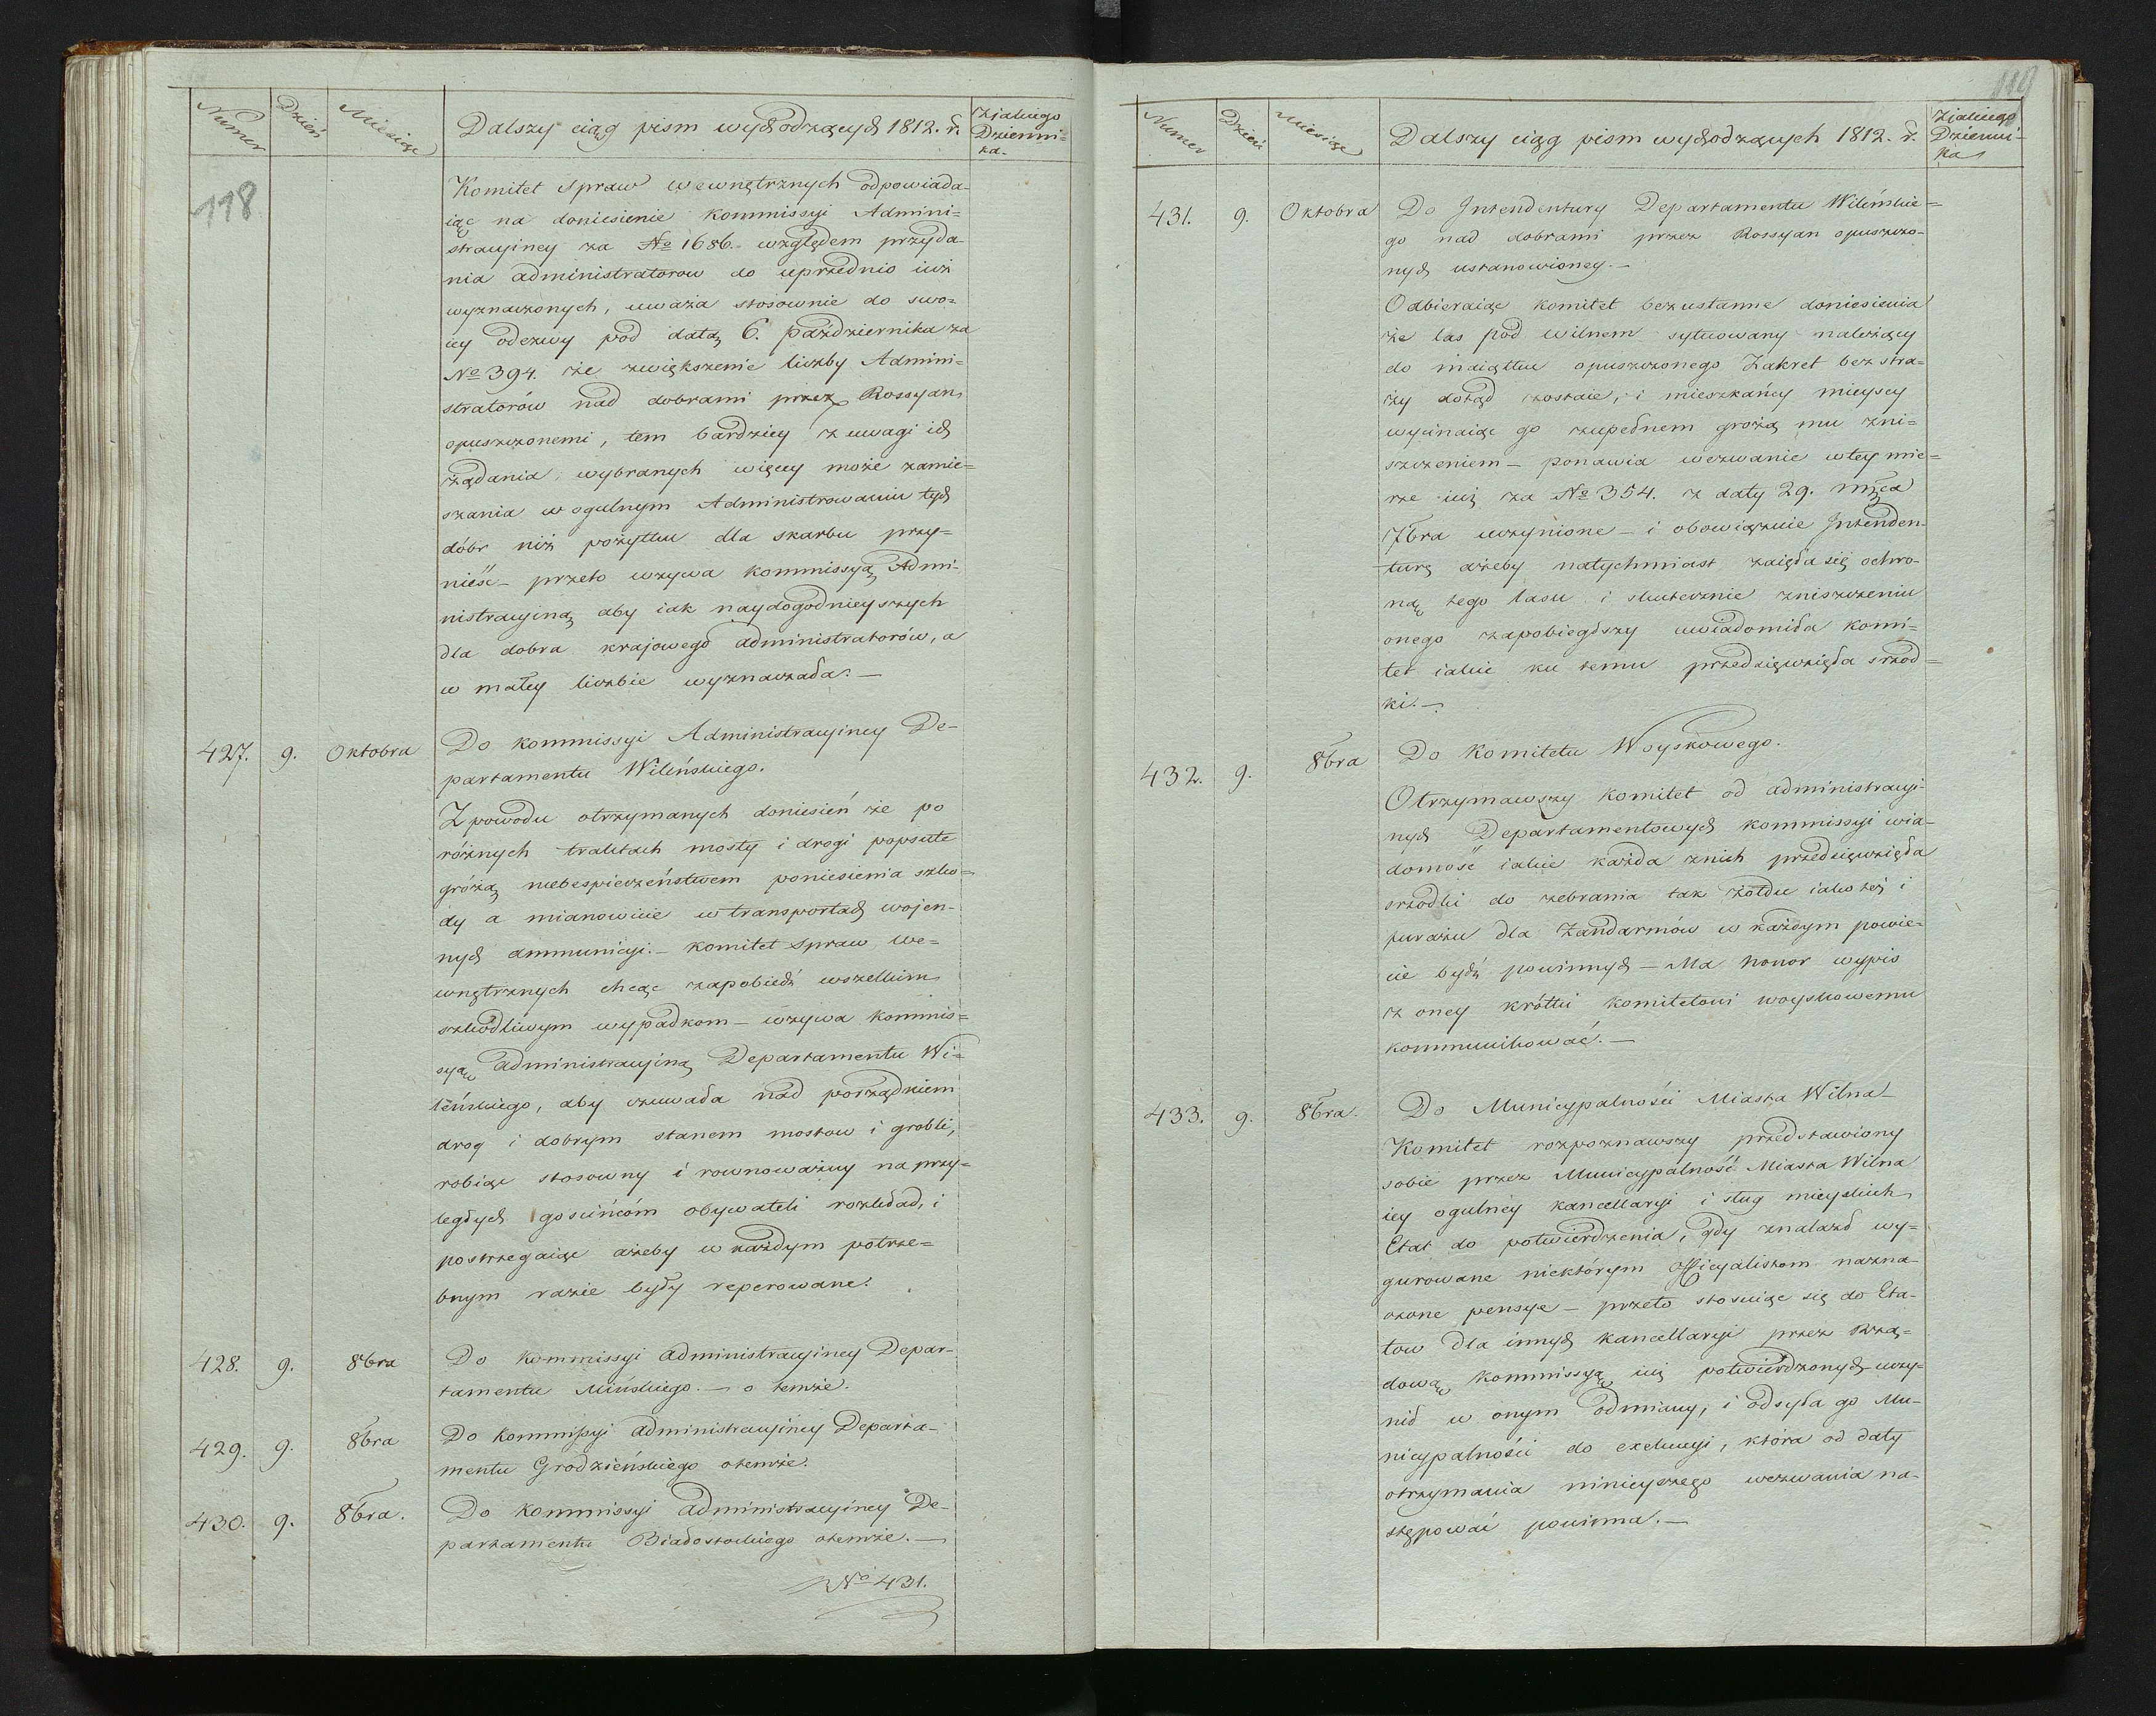 Numer Dzień Miesiąc Dalszy ciąg pism wychodzących 1812. r. Z jakiego
Dzienni-
ka.
118
Komitet Spraw wewnętrznych odpowiada-
iąc na doniesienie Kommissyi Admini=
stracyiney za No 1686. względem przyda-
nia administratorow do uprzednio iuż
wyznaczonych, uważa stosownie do swo=
iey odezwy pod datą 6. października za
No 394. że zwiększenie liczby Admini=
stratorów nad dobrami przez Rossyan
opuszczonemi, tem bardziey z uwagi ich
żądania wybranych więcey może zamie=
szania w ogulnym Administrowaniu tych
dóbr niż pożytku dla skarbu przy=
nieść – przeto wzywa kommissyą Admi-
nistracyiną aby iak naydogodnieyszych
dla dobra krajowego administratorów, a
w małey liczbie wyznaczała. —
427. 9. Oktobra Do kommissyi Administracyiney De-
partamentu Wileńskiego.
Z powodu otrzymanych doniesień że po
różnych traktach mosty i drogi popsute
gróżą niebespieczeństwem poniesienia szko=
dy a mianowicie w transportach wojen-
nych ammunicyi. – Komitet Spraw We=
wnętrznych chcąc zapobiedź wszelkim
szkodliwym wypadkom – wzywa Kommis=
syą Administracyiną Departamentu Wi=
leńskiego, aby czuwała nad porządkiem
drog i dobrym stanem mostow i grobli,
robiąc stosowny i rownoważny na przy=
ległych gościńcóm obywateli rozkład, i
postrzegaiąc ażeby w każdym potrze=
bnym razie były reperowane.
428. 9. 8bra Do kommissyi administracyiney Depar-
tamentu Mińskiego. — o temże.
429. 9. 8bra Do Kommissyi administracyiney Departa-
mentu Grodzieńskiego otemże.
430. 9. 8bra. Do kommissyi administracyiney De-
partamentu Białostockiego otemże. —
No 431.
119
Numer Dzień Miesiąc Dalszy ciąg pism wychodzących 1812. r. Z jakiego
Dzienni-
ka
431. 9. Oktobra Do Intendentury Departamentu Wileńskie=
go nad dobrami przez Rossyan opuszczo-
nych ustanowioney. —
Odbieraiąc komitet bezustanne doniesienia
że las pod wilnem sytuowany należący
do maiątku opuszczonego Zakret bez stra=
ży dotąd zostaie, i mieszkańcy mieyscy
wycinaiąc go zupełnem grożą mu zni=
szczeniem – ponawia wezwanie wtey mie=
rze iuż za No 354. z daty 29. mięca
7bra uczynione – i obowiązuie Intenden-
turę ażeby natychmiast zaięła się ochro-
ną tego lasu i skutecznie zniszczeniu
onego zapobiegłszy uwiadomiła komi-
tet iakie ku temu przedsięwzięła srzod=
ki. —
432. 9. 8bra Do Komitetu Woyskowego.
Otrzymawszy Komitet od administracyi-
nych Departamentowych kommissyi wia-
domość iakie każda znich przedsięwzięła
srzodki do zebrania tak żołdu iako też i
furażu dla Żandarmów w każdym powie-
cie bydź powinnych – Ma honor wypis
z oney krótki komitetowi woyskowemu
kommunikować. —
433. 9. 8bra. Do Municypalności Miasta Wilna
Komitet rozpoznawszy przedstawiony
sobie przez Municypalność Miasta Wilna
iey ogulney kancellaryi i sług mieyskich
Etat do potwierdzenia, gdy znalazł wy-
gurowane niektórym Officyalistom nazna-
czone pensye – przeto stosuiąc się do Eta-
tow dla innych kancellaryi przez Rzą=
dową kommissyą iuż potwierdzonych uczy-
nił w onym odmiany, i odsyła go Mu-
nicypalności do exekucyi, która od daty
otrzymania ninieyszego wezwania na-
stępować powinna. —